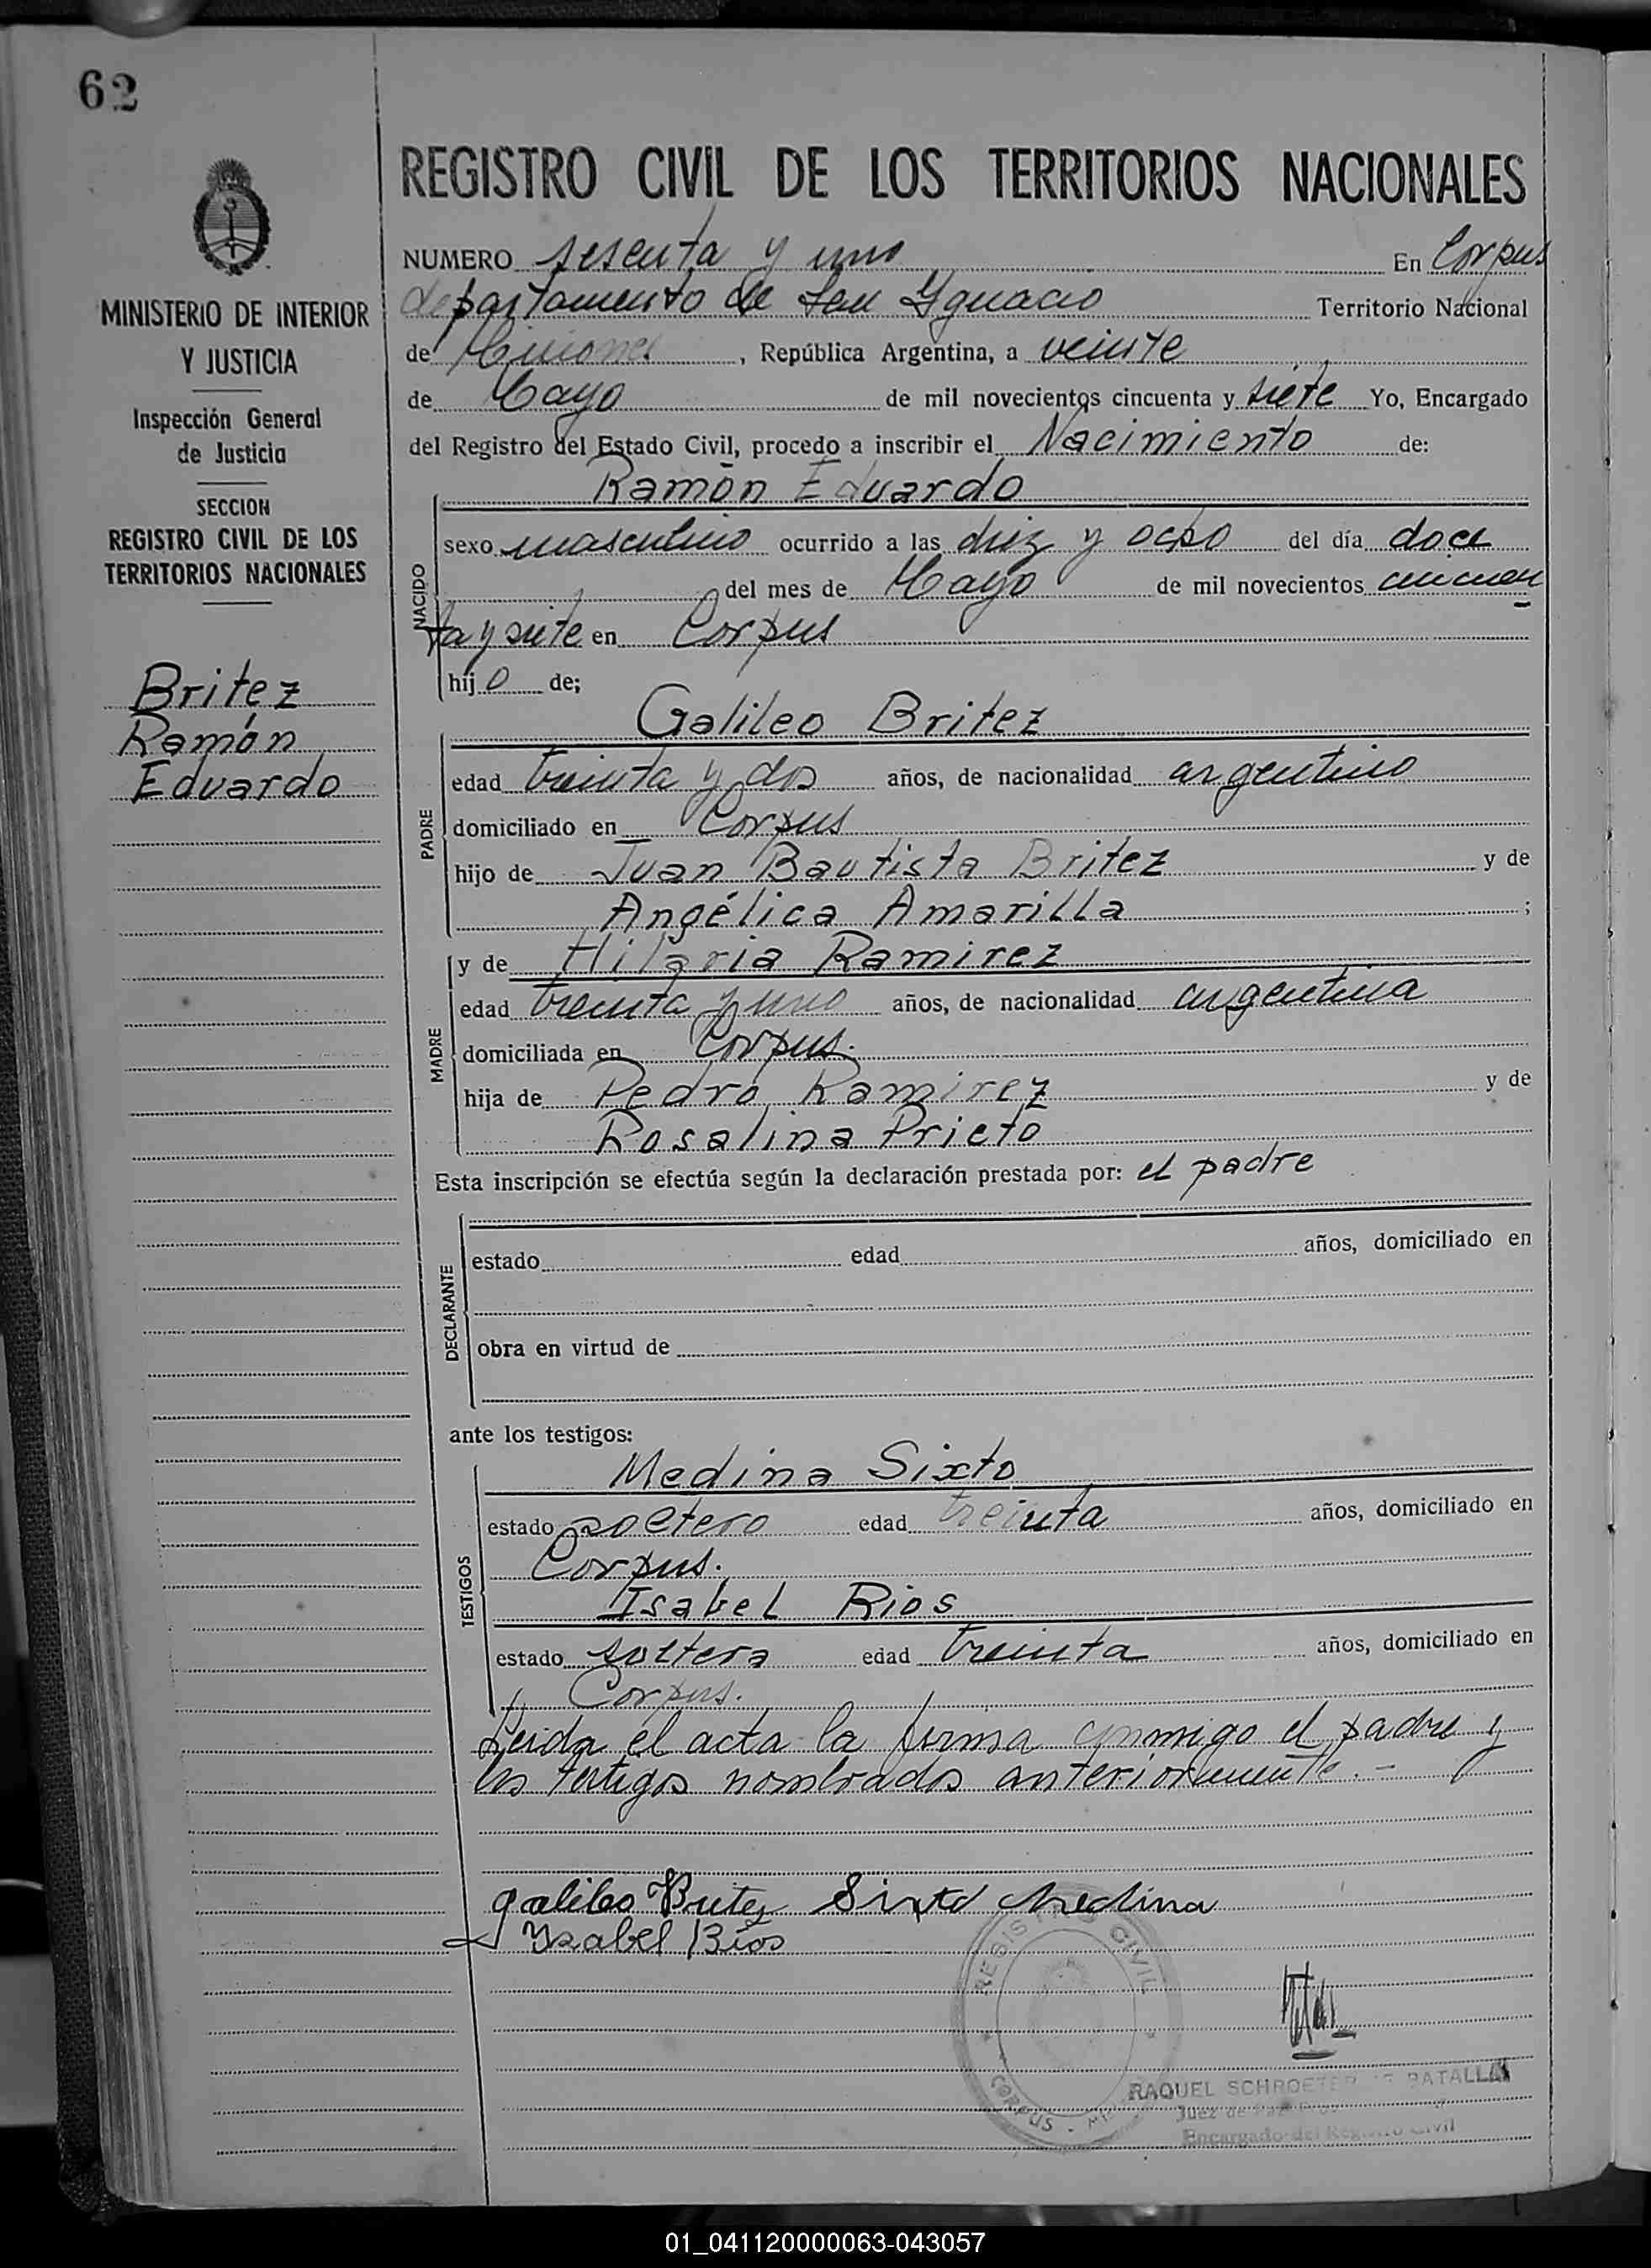 62
REGISTRO CIVIL DE LOS TERRITORIOS NACIONALES
MINISTERIO DE INTERIOR
Y JUSTICIA
Inspección General
de Justicia
SECCION
REGISTRO CIVIL DE LOS
TERRITORIOS NACIONALES
Britez
Ramón
Eduardo
NUMERO sesenta y uno En Corpus
departamento de San Ygnacio Territorio Nacional
de Misiones, República Argentina, a veinte
de Mayo de mil novecientos cincuenta y siete Yo, Encargado
del Registro del Estado Civil, procedo a inscribir el Nacimiento de:
Ramón Eduardo
NACIDO
sexo masculino ocurrido a las diez y ocho del día doce
del mes de Mayo de mil novecientos cincuen
ta y siete en Corpus
hij o de;
PADRE
Galileo Britez
edad treinta y dos años, de nacionalidad argentino
domiciliado en Corpus
hijo de Juan Bautista Britez y de
Angélica Amarilla ;
MADRE
y de Hilaria Ramirez
edad treinta y uno años, de nacionalidad argentina
domiciliada en Corpus.
hija de Pedro Ramirez y de
Rosalina Prieto
Esta inscripción se efectúa según la declaración prestada por: el padre
DECLARANTE
estado edad años, domiciliado en
obra en virtud de
ante los testigos:
TESTIGOS
Medina Sixto
estado soltero edad treinta años, domiciliado en
Corpus.
Isabel Rios
estado soltera edad treinta años, domiciliado en
Corpus.
Leida el acta la firma conmigo el padre y
los testigos nombrados anteriormente.-
galileo Britez Sixto Medina
Ysabel Rios
REGISTRO CIVIL
CORPUS
RAQUEL SCHROETER DE BATALLA
Juez de Paz
Encargado del Registro Civil
01_041120000063-043057